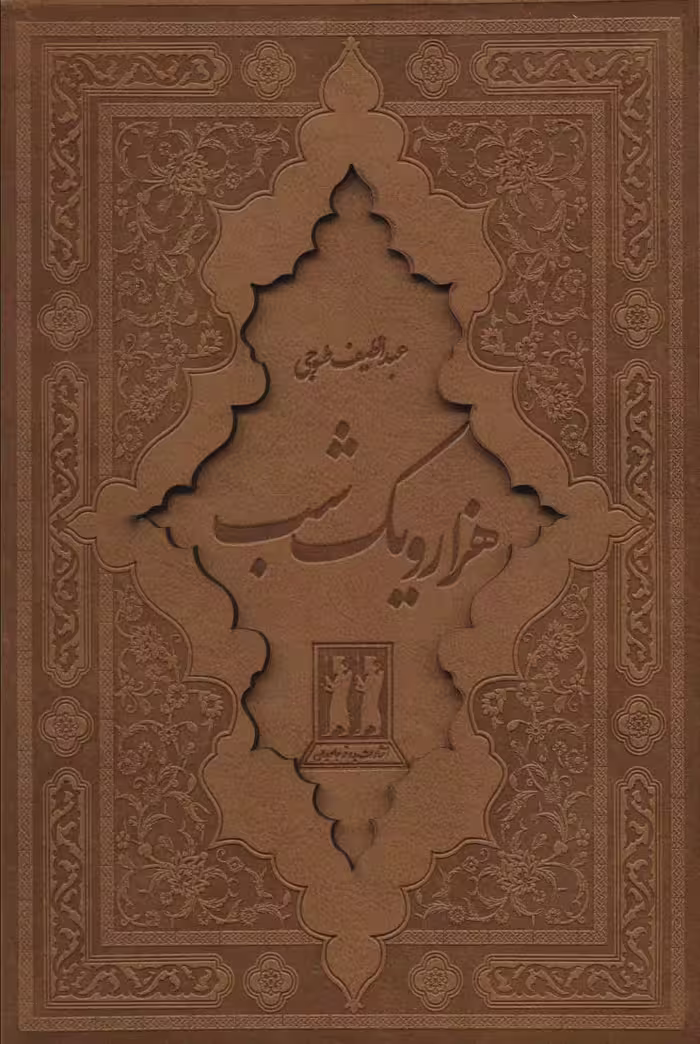 عبداللطیف طسوجی
هزار و یک شب